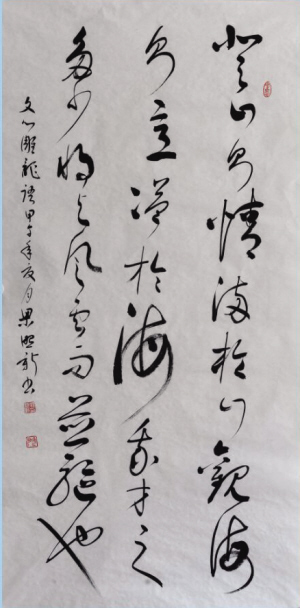 登山则情满於山觀海
则意溢於海我才之
多少將与風雲而並驅也
文心雕龍語甲午年夏月書